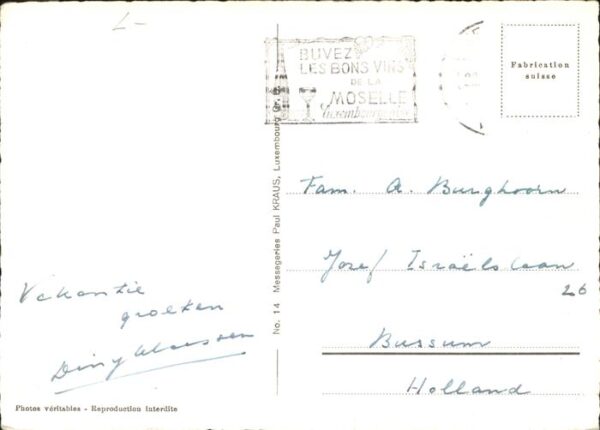 BUVEZ
LES BONS VINS
DE LA
MOSELLE
Luxembourgeoise
Fabrication
suisse
No. 14 Messageries Paul KRAUS, Luxembourg Gr. D.
Fam. A. Burghoorn
Jozef Israëlslaan
26
Bussum
Holland
Vakantie
groeten
Diny Claessen
Photos véritables - Reproduction interdite